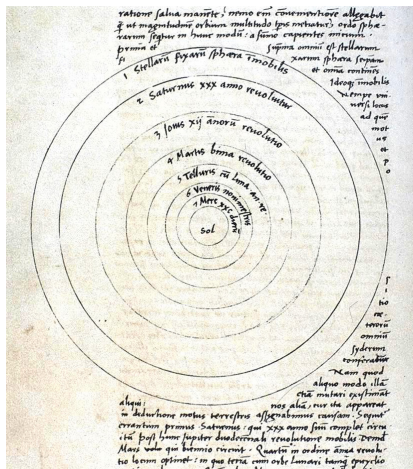 ratione salua manēte, nemo em̄ conuenientiorē allegabit
q̄ ut magnitudinē orbium multitudo tp̄is metiatur, ordo sphæ-
rarum seqtur in hunc modū: a sūmo capientes initium.
prima et suprema omniū est stellarum
fi xarum sphæra seipsam
et omīa continēs
Ideoqȝ īmobilis
Nempe uni-
uersi locus
ad quē
mot
us
et
p
o
1 Stellarū fixarū sphæra īmobilis
2 Saturnus xxx anno reuoluitur
3 Jouis xij annorū reuolutio
4 Martis bima reuolutio
5 Telluris cū luna an. re
6 Veneris nonimestris
7 Merc xxc dierū
Sol
s
i
tio
cæ-
terorū
omniū
syderum
conferatur
Nam quod
aliquo modo illā
etiā mutari existimāt
aliqui: nos aliā, cur ita appareat
in deductione motus terrestris assignabimus causam. Sequit
errantium primus Saturnus: qui xxx anno suū complet circu
itū. Post hunc Jupiter duodecennali reuolutione mobilis. Deinde
Mars qui biennio circuit. Quartū in ordine annua reuolu-
tio locum optinet: in quo terrā cum orbe Lunari tanq̄ epicyclio